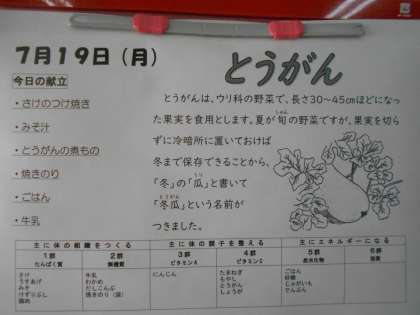 7月19日(月)
とうがん
今日の献立
・さけのつけ焼き
・みそ汁
・とうがんの煮もの
・焼きのり
・ごはん
・牛乳
とうがんは、ウリ科の野菜で、長さ30～45cmほどになっ
た果実を食用とします。夏が旬の野菜ですが、果実を切ら
ずに冷暗所に置いておけば
冬まで保存できることから、
「冬」の「瓜」と書いて
「冬瓜」という名前が
つきました。
主に体の組織をつくる 主に体の調子を整える 主にエネルギーになる
1群 2群 3群 4群 5群 6群
たんぱく質 無機質 ビタミンA ビタミンC 炭水化物 脂質
さけ 牛乳 にんじん たまねぎ ごはん
うすあげ わかめ もやし 砂糖
みそ だしこんぶ とうがん じゃがいも
けずりぶし 焼きのり しょうが でんぷん
鶏肉